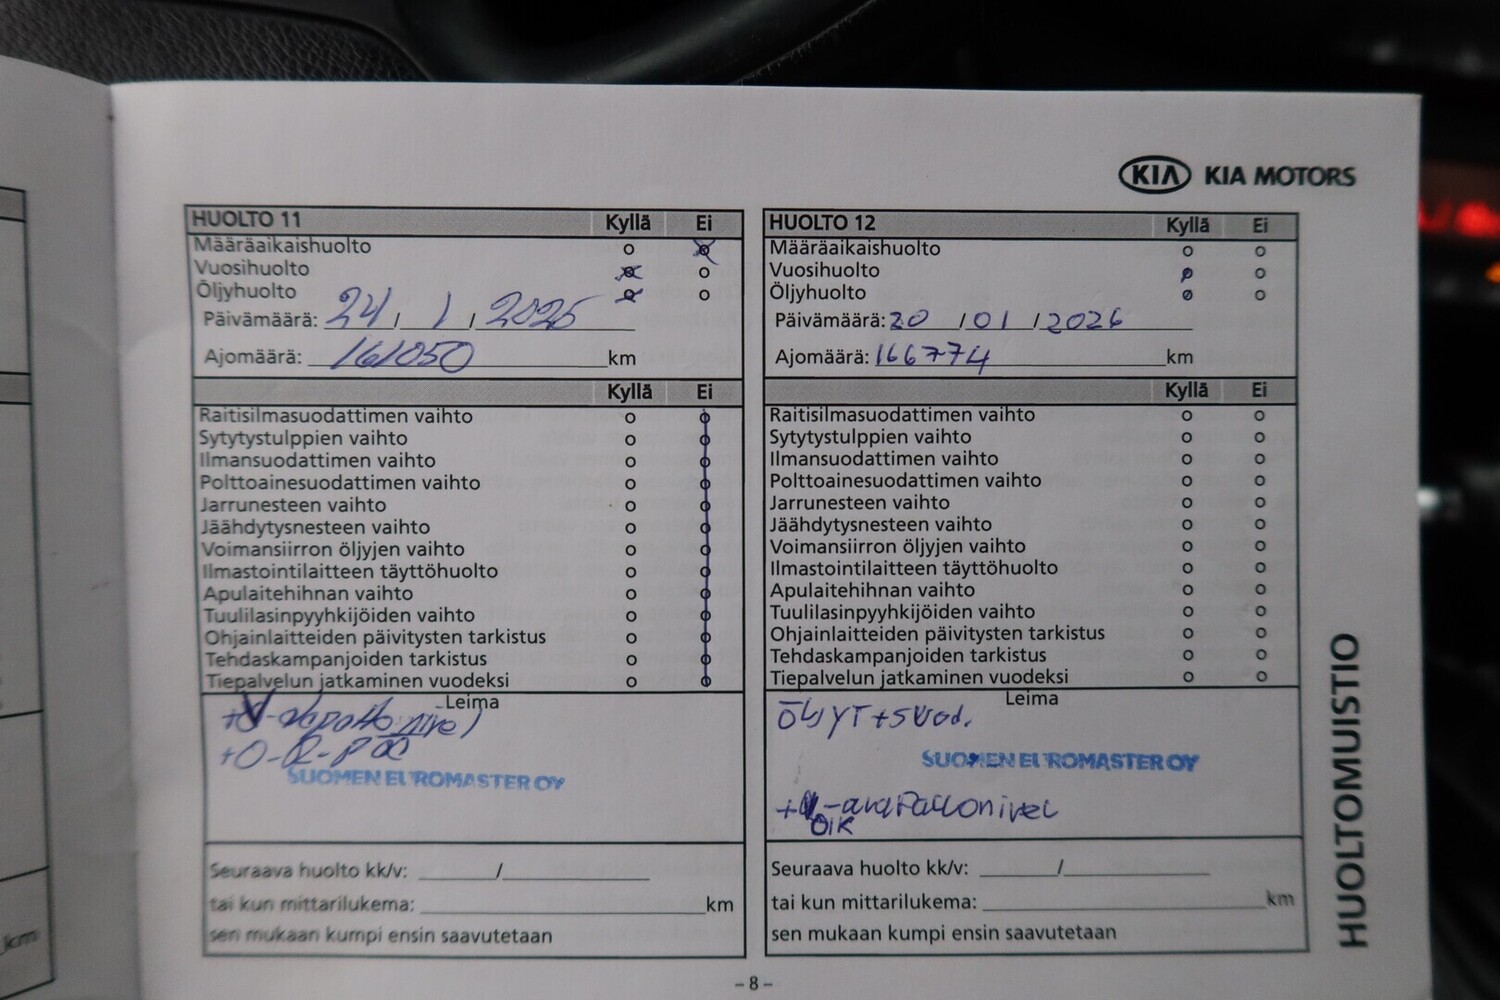 KIA KIA MOTORS
HUOLTO 11 Kyllä Ei
Määräaikaishuolto
Vuosihuolto
Öljyhuolto
Päivämäärä: 24 / 1 / 2025
Ajomäärä: 161050 km
Kyllä Ei
Raitisilmasuodattimen vaihto
Sytytystulppien vaihto
Ilmansuodattimen vaihto
Polttoainesuodattimen vaihto
Jarrunesteen vaihto
Jäähdytysnesteen vaihto
Voimansiirron öljyjen vaihto
Ilmastointilaitteen täyttöhuolto
Apulaitehihnan vaihto
Tuulilasinpyyhkijöiden vaihto
Ohjainlaitteiden päivitysten tarkistus
Tehdaskampanjoiden tarkistus
Tiepalvelun jatkaminen vuodeksi
Leima
SUOMEN EUROMASTER OY
Seuraava huolto kk/v: /
tai kun mittarilukema: km
sen mukaan kumpi ensin saavutetaan
HUOLTO 12 Kyllä Ei
Määräaikaishuolto
Vuosihuolto
Öljyhuolto
Päivämäärä: 20 / 01 / 2026
Ajomäärä: 166774 km
Kyllä Ei
Raitisilmasuodattimen vaihto
Sytytystulppien vaihto
Ilmansuodattimen vaihto
Polttoainesuodattimen vaihto
Jarrunesteen vaihto
Jäähdytysnesteen vaihto
Voimansiirron öljyjen vaihto
Ilmastointilaitteen täyttöhuolto
Apulaitehihnan vaihto
Tuulilasinpyyhkijöiden vaihto
Ohjainlaitteiden päivitysten tarkistus
Tehdaskampanjoiden tarkistus
Tiepalvelun jatkaminen vuodeksi
Leima
ÖLJYT + SUOD.
SUOMEN EUROMASTER OY
OIK
Seuraava huolto kk/v: /
tai kun mittarilukema: km
sen mukaan kumpi ensin saavutetaan
HUOLTOMUISTIO
– 8 –
km